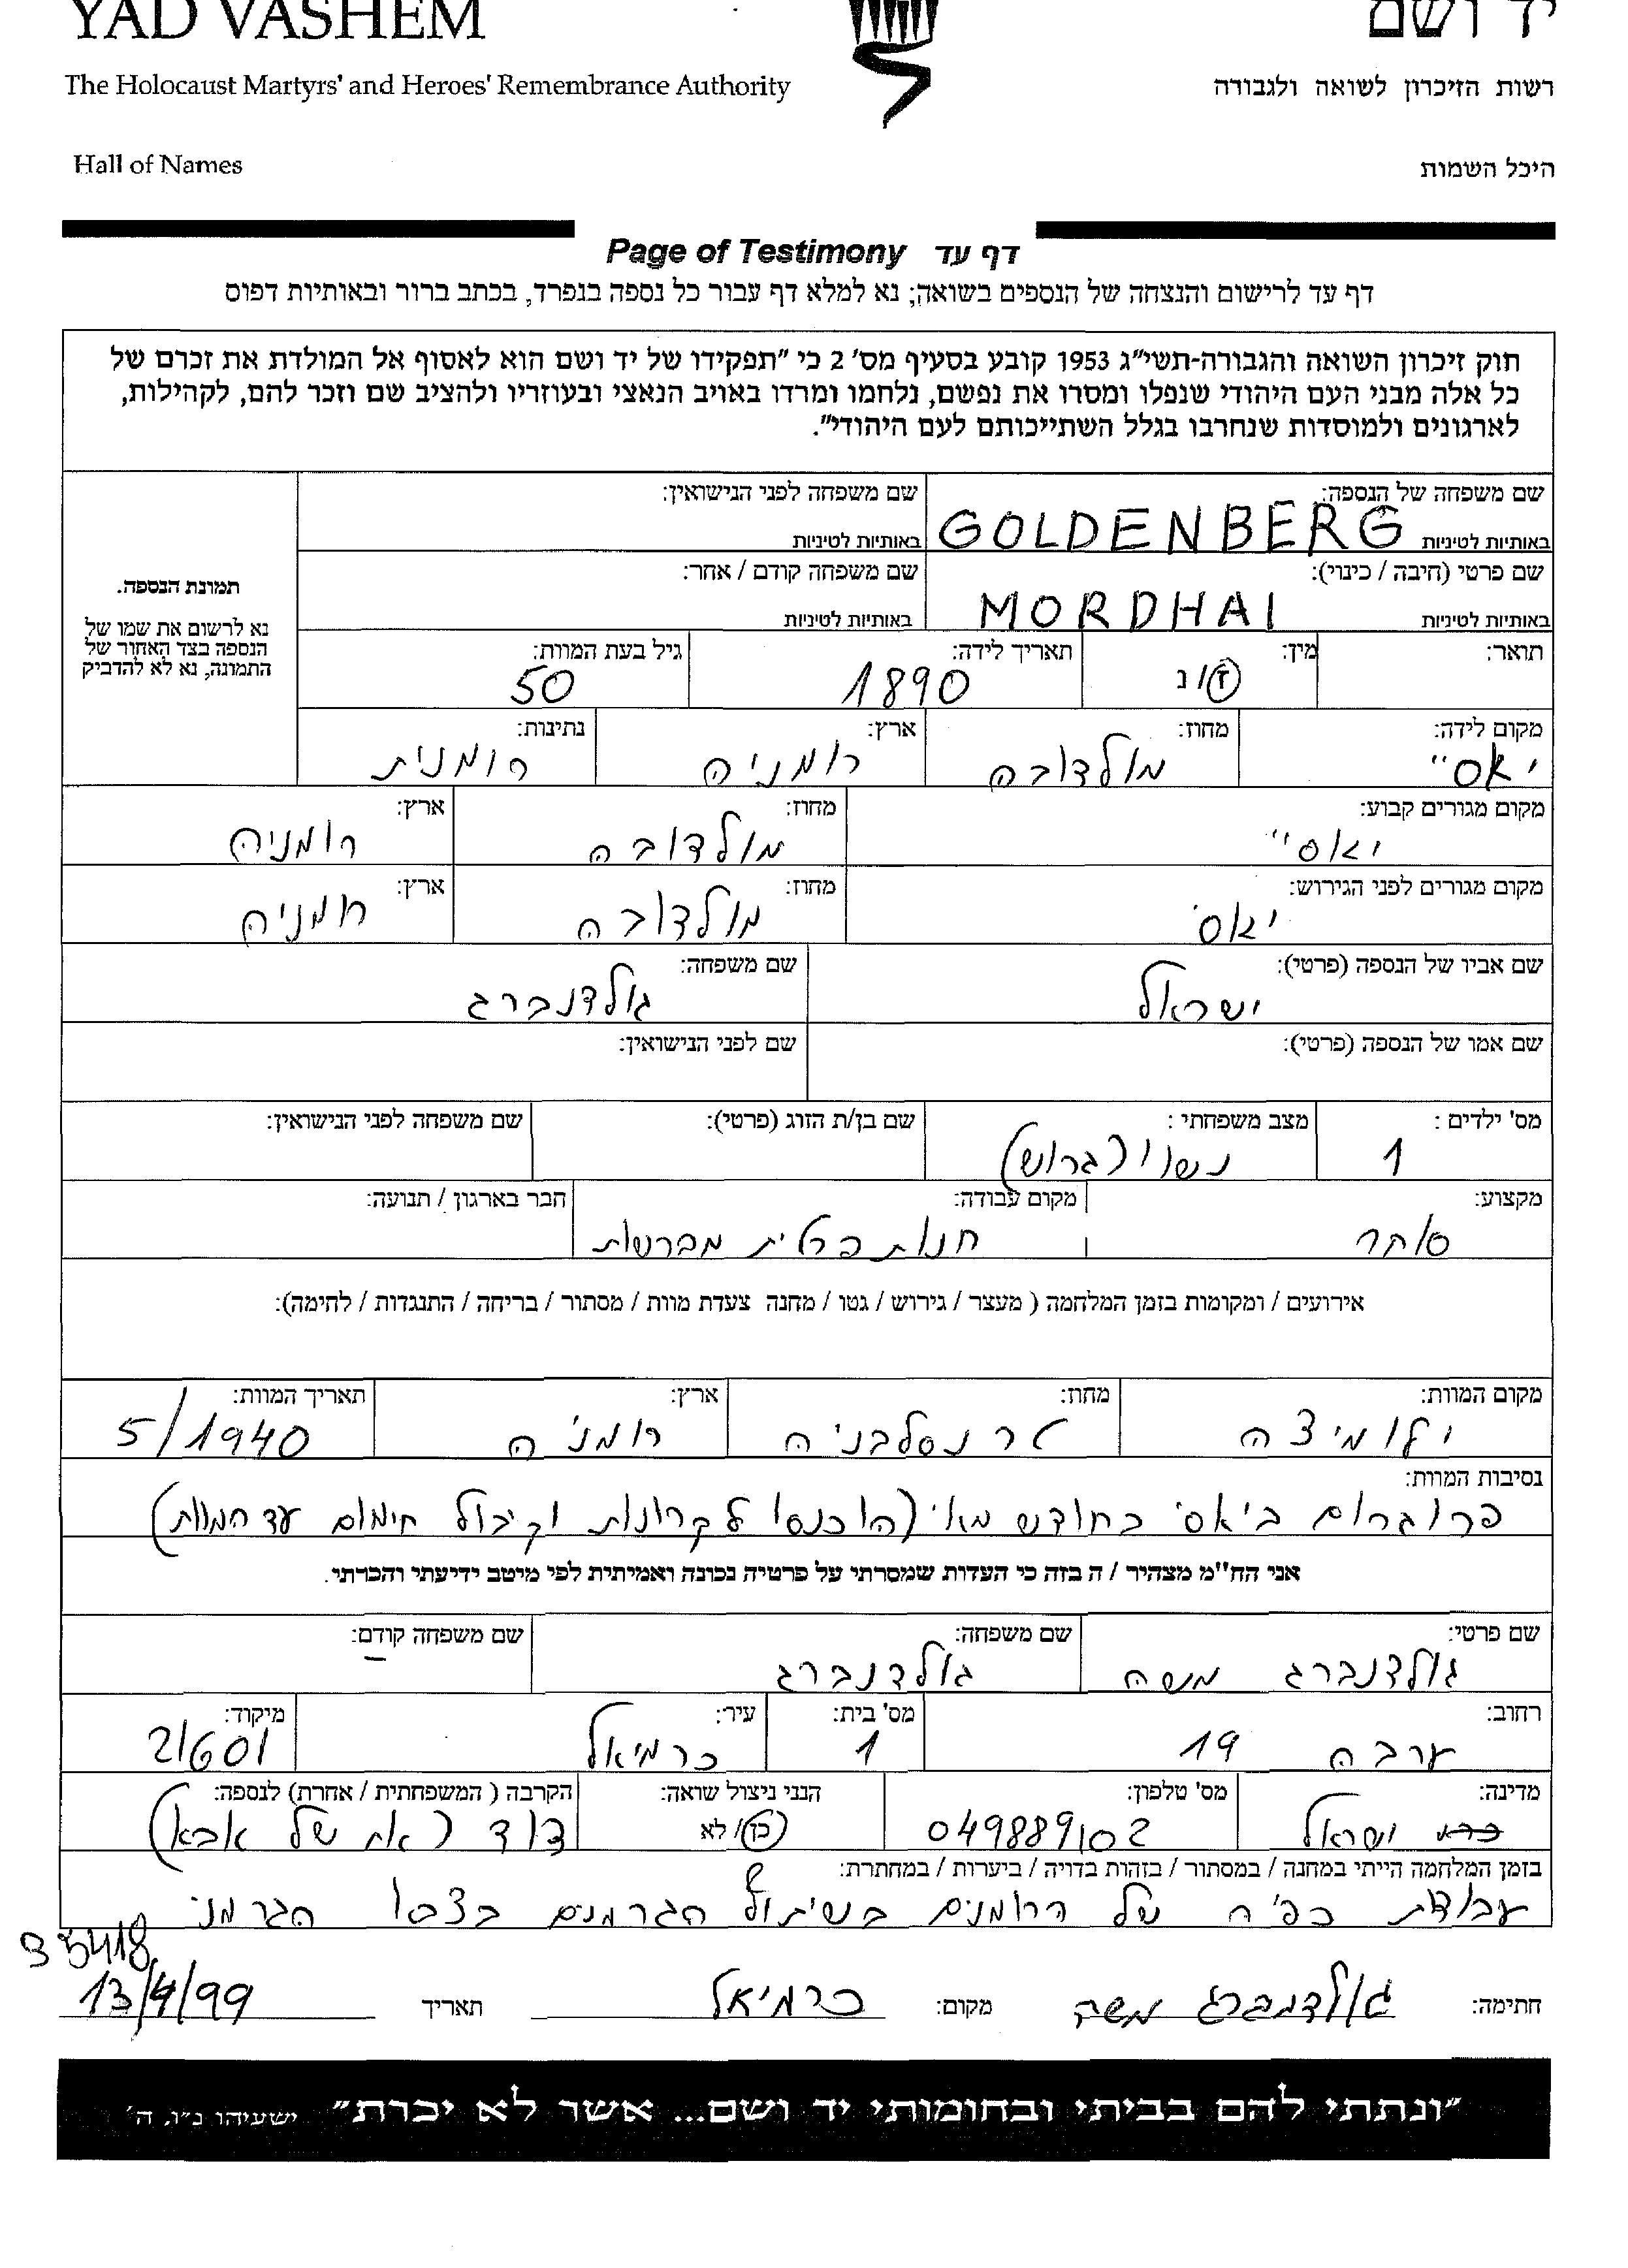 YAD VASHEM יד ושם
The Holocaust Martyrs' and Heroes' Remembrance Authority רשות הזיכרון לשואה ולגבורה
Hall of Names היכל השמות
Page of Testimony דף עד
דף עד לרישום והנצחה של הנספים בשואה; נא למלא דף עבור כל נספה בנפרד, בכתב ברור ובאותיות דפוס
חוק זיכרון השואה והגבורה-תשי"ג 1953 קובע בסעיף מס' 2 כי "תפקידו של יד ושם הוא לאסוף אל המולדת את זכרם של
כל אלה מבני העם היהודי שנפלו ומסרו את נפשם, נלחמו ומרדו באויב הנאצי ובעוזריו ולהציב שם וזכר להם, לקהילות,
לארגונים ולמוסדות שנחרבו בגלל השתייכותם לעם היהודי".
שם משפחה של הנספה: שם משפחה לפני הנישואין:
באותיות לטיניות GOLDENBERG באותיות לטיניות
שם פרטי (חיבה / כינוי): שם משפחה קודם / אחר:
באותיות לטיניות MORDHAI באותיות לטיניות
תמונת הנספה.
נא לרשום את שמו של
הנספה בצד האחור של
התמונה, נא לא להדביק
תואר: מין: תאריך לידה: גיל בעת המוות:
ז / נ 1890 50
מקום לידה: מחוז: ארץ: נתינות:
יאסי מולדובה רומניה רומנית
מקום מגורים קבוע: מחוז: ארץ:
יאסי מולדובה רומניה
מקום מגורים לפני הגירוש: מחוז: ארץ:
יאסי מולדובה רומניה
שם אביו של הנספה (פרטי): שם משפחה:
ישראל גולדנברג
שם אמו של הנספה (פרטי): שם לפני הנישואין:
מס' ילדים : מצב משפחתי : שם בן/ת הזוג (פרטי): שם משפחה לפני הנישואין:
1 נשוי (גרוש)
מקצוע: מקום עבודה: חבר בארגון / תנועה:
סוחר חנות פרטית מברשות
אירועים / ומקומות בזמן המלחמה ( מעצר / גירוש / גטו / מחנה צעדת מוות / מסתור / בריחה / התנגדות / לחימה):
מקום המוות: מחוז: ארץ: תאריך המוות:
ילומיצה טרנסלבניה רומניה 5/1940
נסיבות המוות:
פרוגרום ביאסי בחודש מאי (הוכנסו לקרונות וקיבול חימום עד המוות)
אני הח"מ מצהיר / ה בזה כי העדות שמסרתי על פרטיה נכונה ואמיתית לפי מיטב ידיעתי והכרתי.
שם פרטי: שם משפחה: שם משפחה קודם:
גולדנברג משה גולדנברג –
רחוב: מס' בית: עיר: מיקוד:
ערבה 19 1 כרמיאל 21601
מדינה: מס' טלפון: הנני ניצול שואה: הקרבה ( המשפחתית / אחרת) לנספה:
ישראל 049889102 כן / לא דוד (אח של אבא)
בזמן המלחמה הייתי במחנה / במסתור / בזהות בדויה / ביערות / במחתרת:
עבודת כפיה של הרומנים בשיתוף הגרמנים בצבו הגרמני
33418
חתימה: גולדנברג משה מקום: כרמיאל תאריך 13/4/99
"ונתתי להם בביתי ובחומותי יד ושם... אשר לא יכרת" ישעיהו נ"ו, ה'